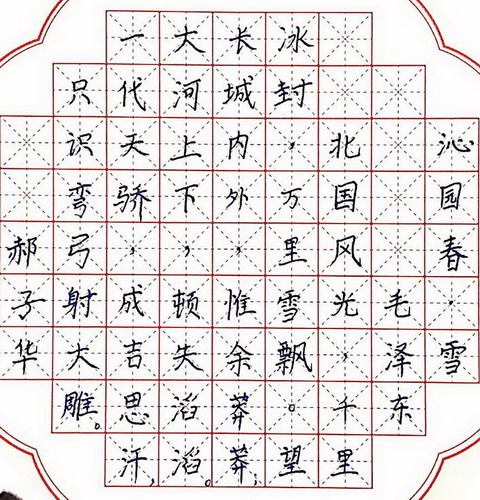 沁园春·雪
毛泽东
北国风光，千里
冰封，万里雪飘。望
长城内外，惟余莽莽；
大河上下，顿失滔滔。
一代天骄，成吉思汗，
只识弯弓射大雕。
郝子华